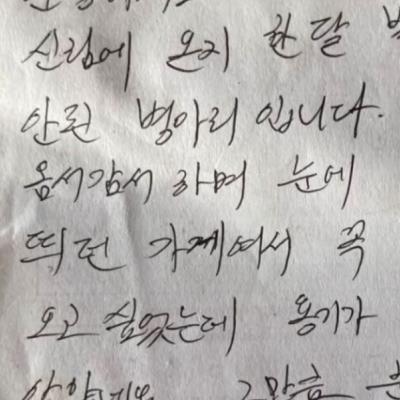 신림에 온지 한달 밖
안된 병아리 입니다.
옴서감서 하며 눈에
띄던 가게여서 꼭
오고 싶었는데 용기가